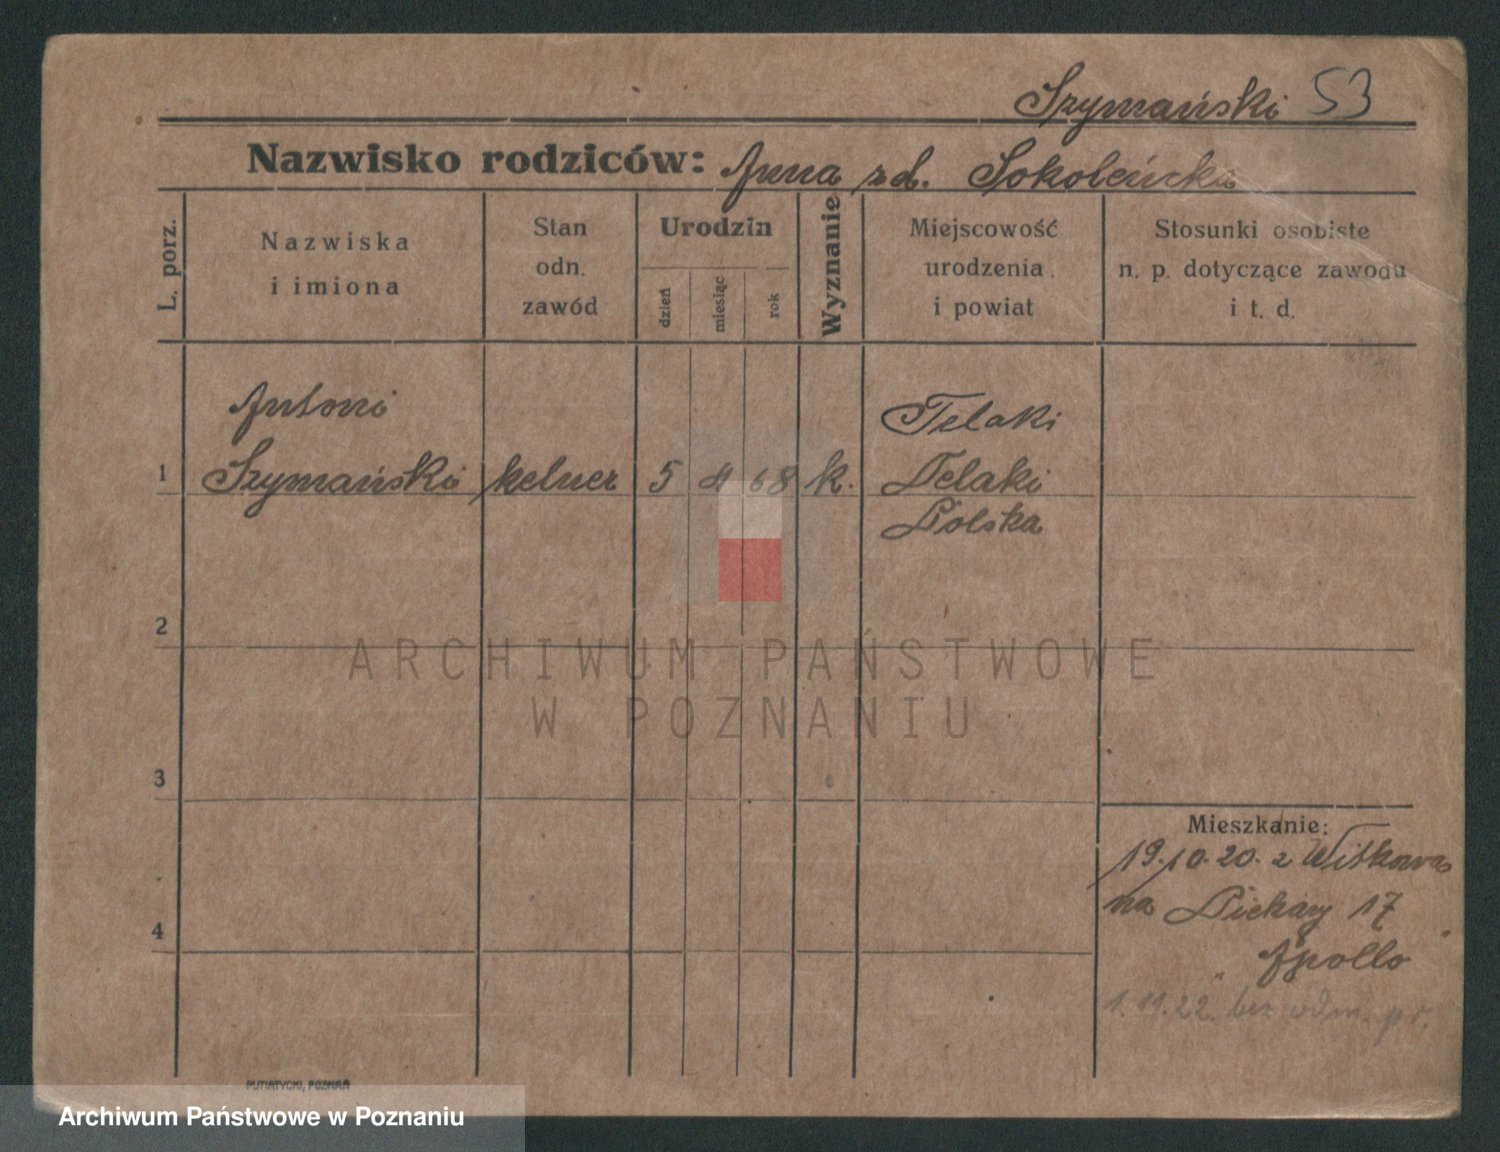 Szymański 53
Nazwisko rodziców: Anna zd. Sokoleńcka
L. porz.
Nazwiska
i imiona
Stan
odn.
zawód
Urodzin
dzień
miesiąc
rok
Wyznanie
Miejscowość
urodzenia
i powiat
Stosunki osobiste
n. p. dotyczące zawodu
i t. d.
Antoni
Telaki
1 Szymański kelner 5 4 68 k. Telaki
Polska
2
ARCHIWUM PAŃSTWOWE
W POZNANIU
3
Mieszkanie:
19.10.20. z Witkowa
na Piekary 17
4
"Apollo"
1.11.22. bez odm. pr.
PUTIATYCKI, POZNAŃ
Archiwum Państwowe w Poznaniu